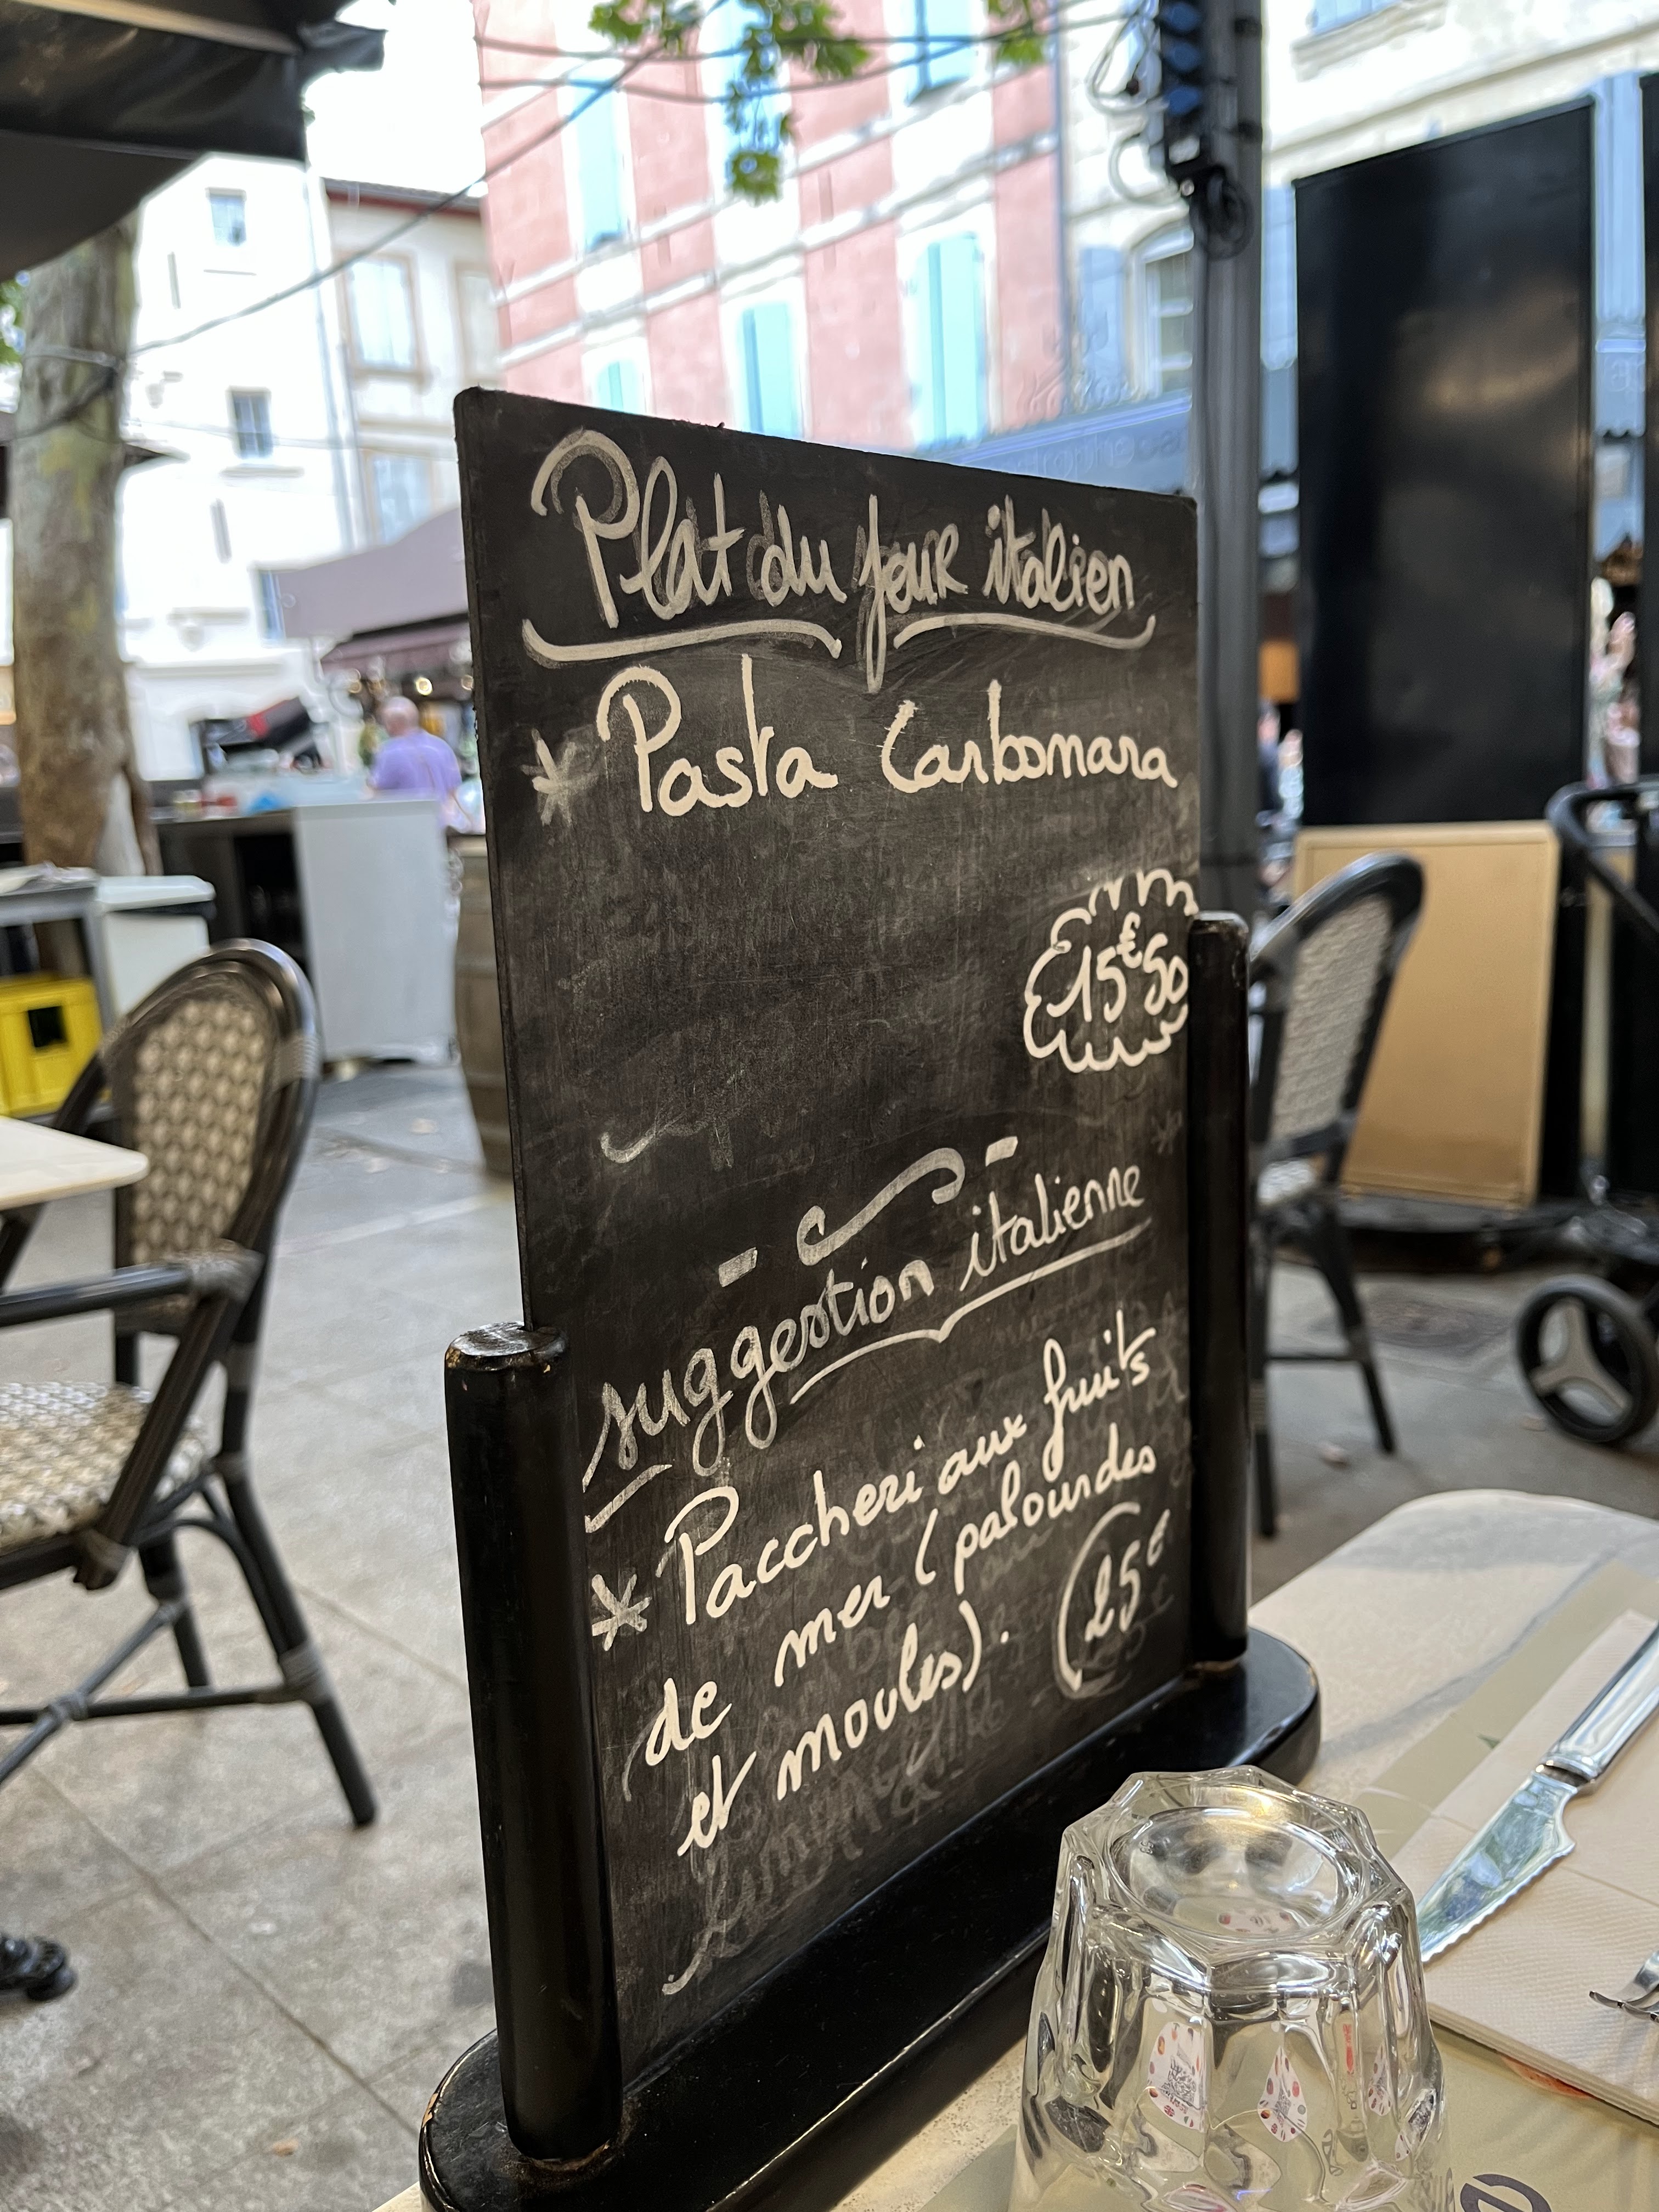 Plat du jour italien
* Pasta Carbonara
15€50
suggestion italienne
* Paccheri aux fruits
de mer (palourdes
et moules).
25€